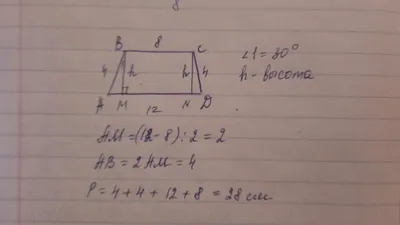 8
B 8 C
∠1 = 30°
4 h h 4
h - высота
A M N D
12
AM = (12 - 8) : 2 = 2
AB = 2AM = 4
P = 4 + 4 + 12 + 8 = 28 см